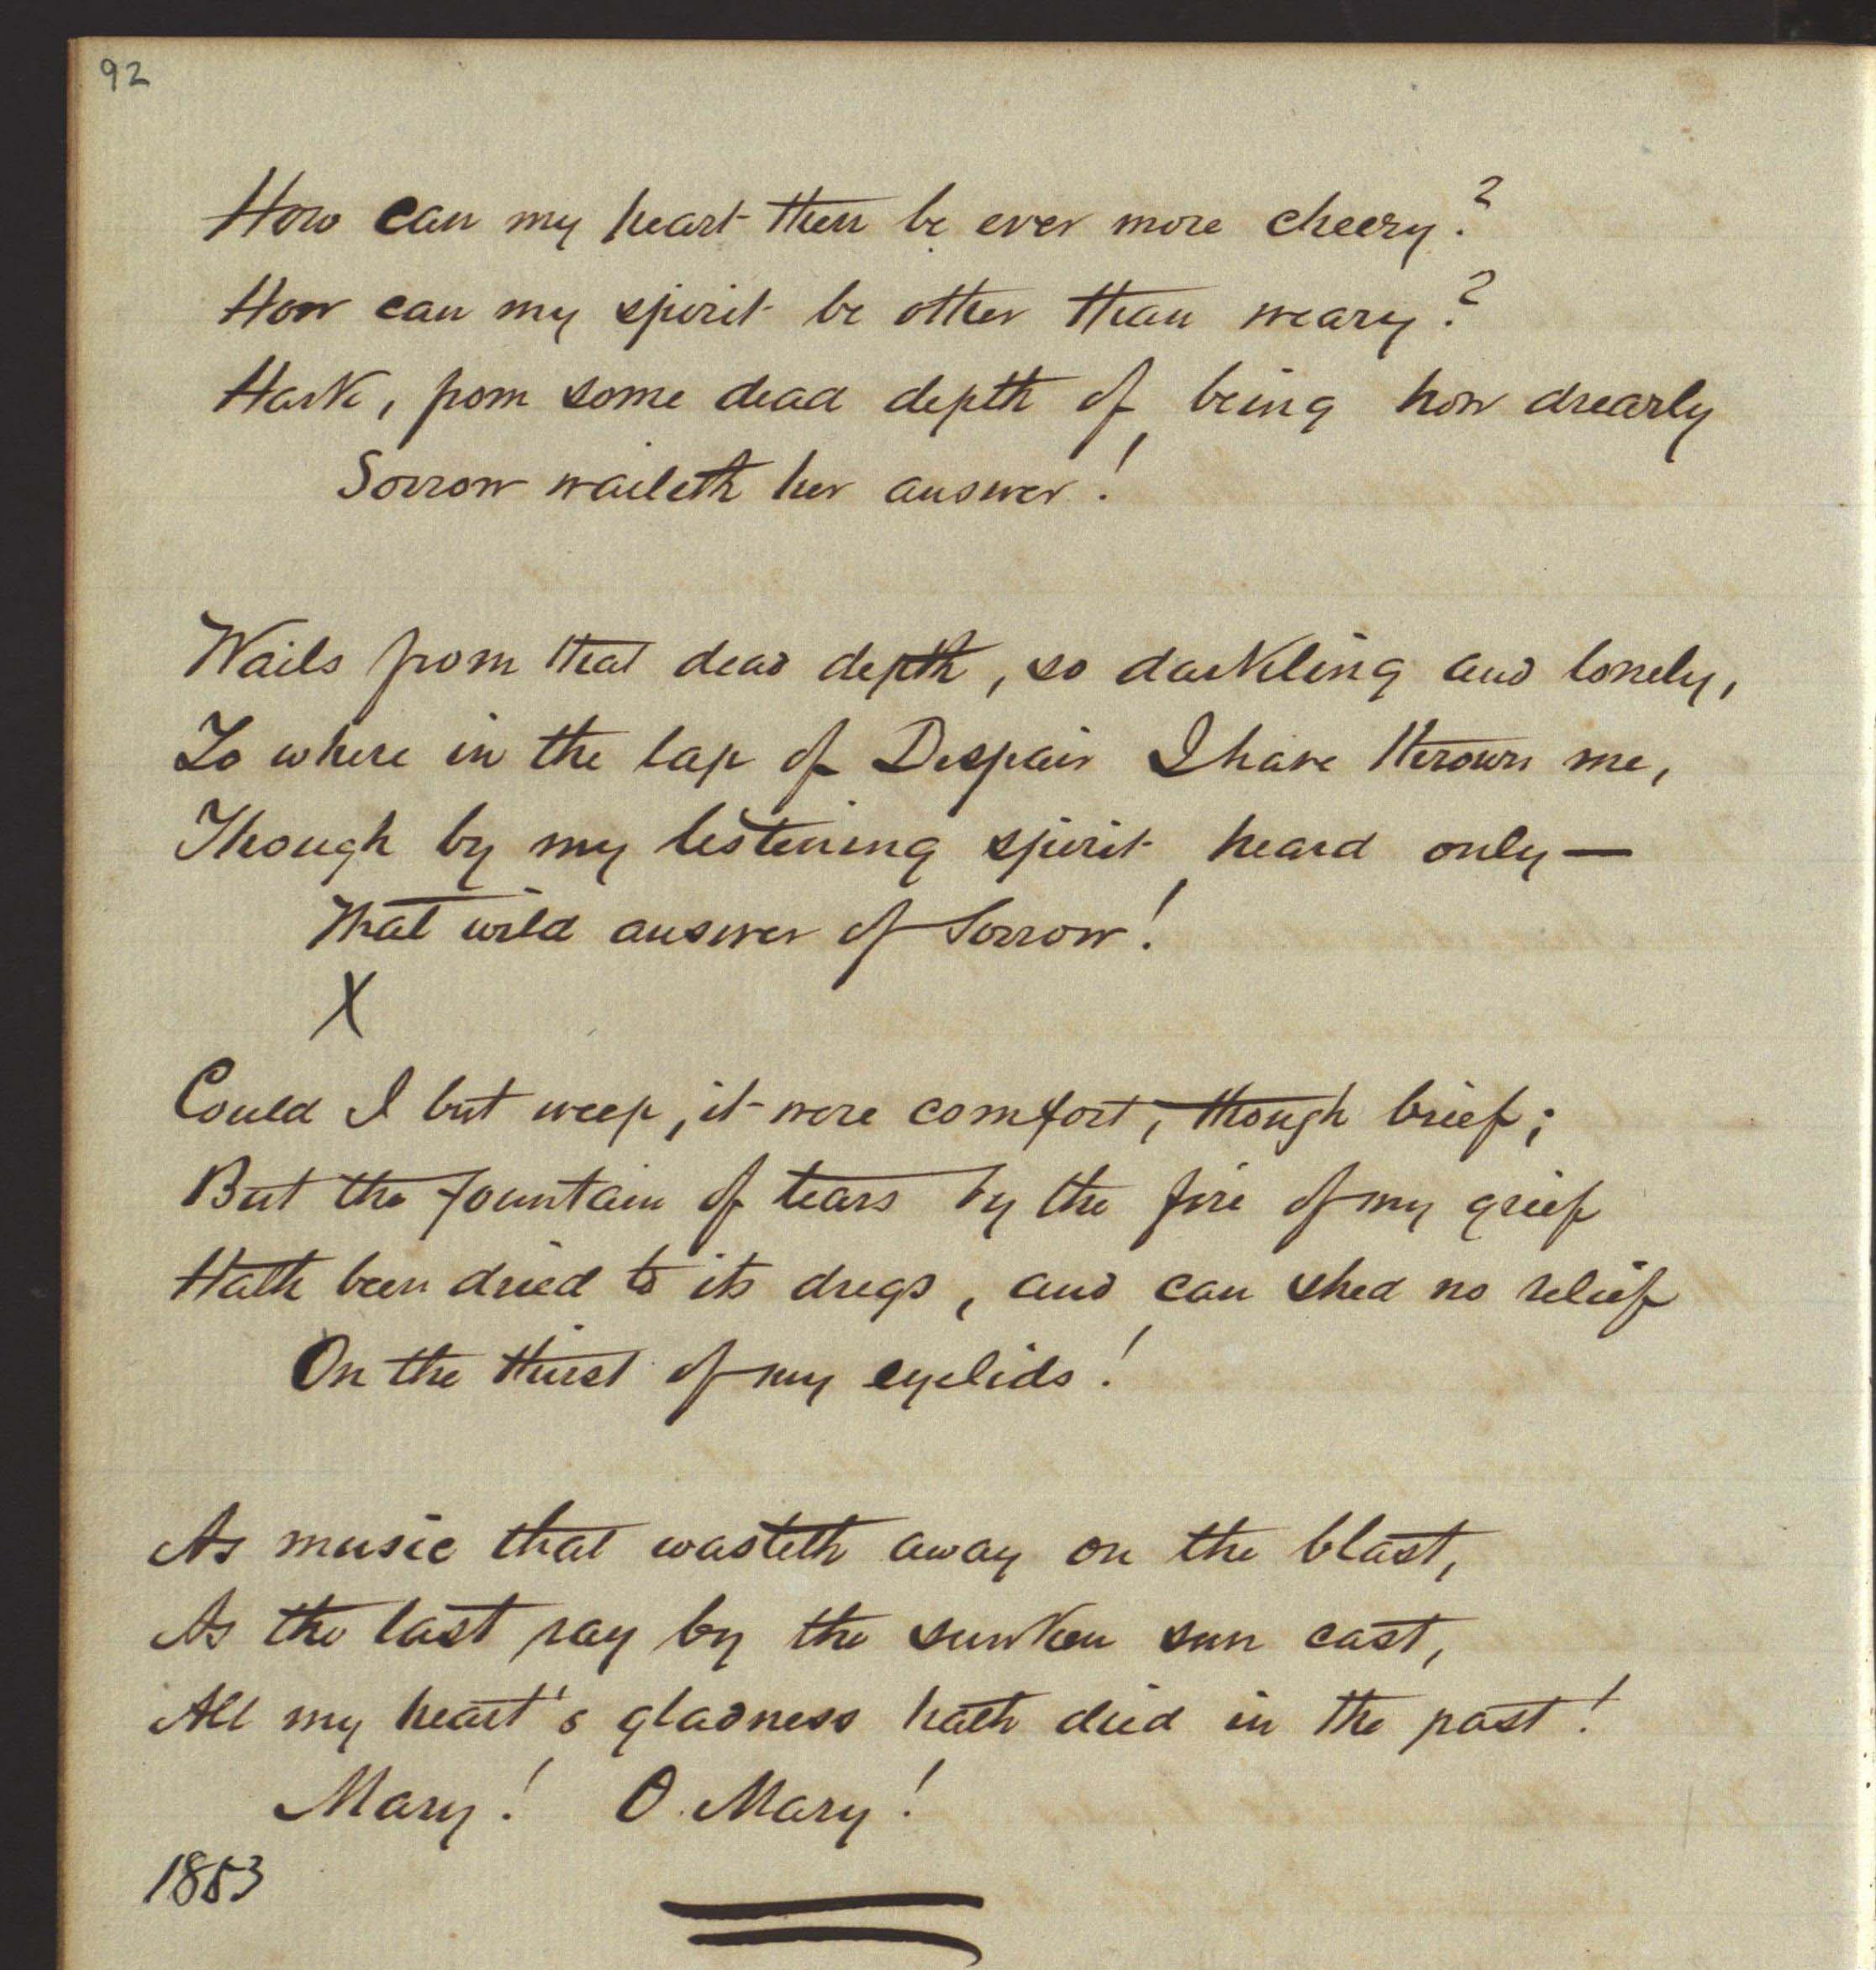 92
How can my heart then be ever more cheery?
How can my spirit be other than weary?
Hark, from some dead depth of being how drearly
Sorrow waileth her answer!
Wails from that dead depth, so darkling and lonely,
To where in the lap of Despair I have thrown me,
Though by my listening spirit heard only—
That wild answer of Sorrow!
X
Could I but weep, it were comfort, though brief;
But the fountain of tears by the fire of my grief
Hath been dried to its dregs, and can shed no relief
On the thirst of my eyelids!
As music that wasteth away on the blast,
As the last ray by the sunken sun cast,
All my heart's gladness hath died in the past!
Mary! O Mary!
1853